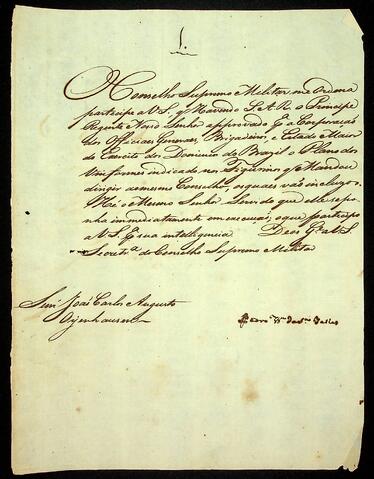 1.
O Conselho Supremo Militar me Ordena
participe a V.S. q' Havendo S.A.R. o Principe
Regente Nosso Senhor approvado pª a Corporação
dos Officiaes Generaes, Brigadeiros, e Estado Maior
do Exercito dos Dominios do Brazil o Plano dos
Uniformes indicado nos Figurinos q' Mandou
dirigir ao mesmo Conselho, os quaes vão inclusos.
He o Mesmo Senhor Servido que elle se po-
nha immediatamente em execução; o que participo
a V.S. pª sua intelligencia. Deos Gde a V.S.
Secretª do Conselho Supremo Militar
Senr. João Carlos Augusto
Oijenhausen